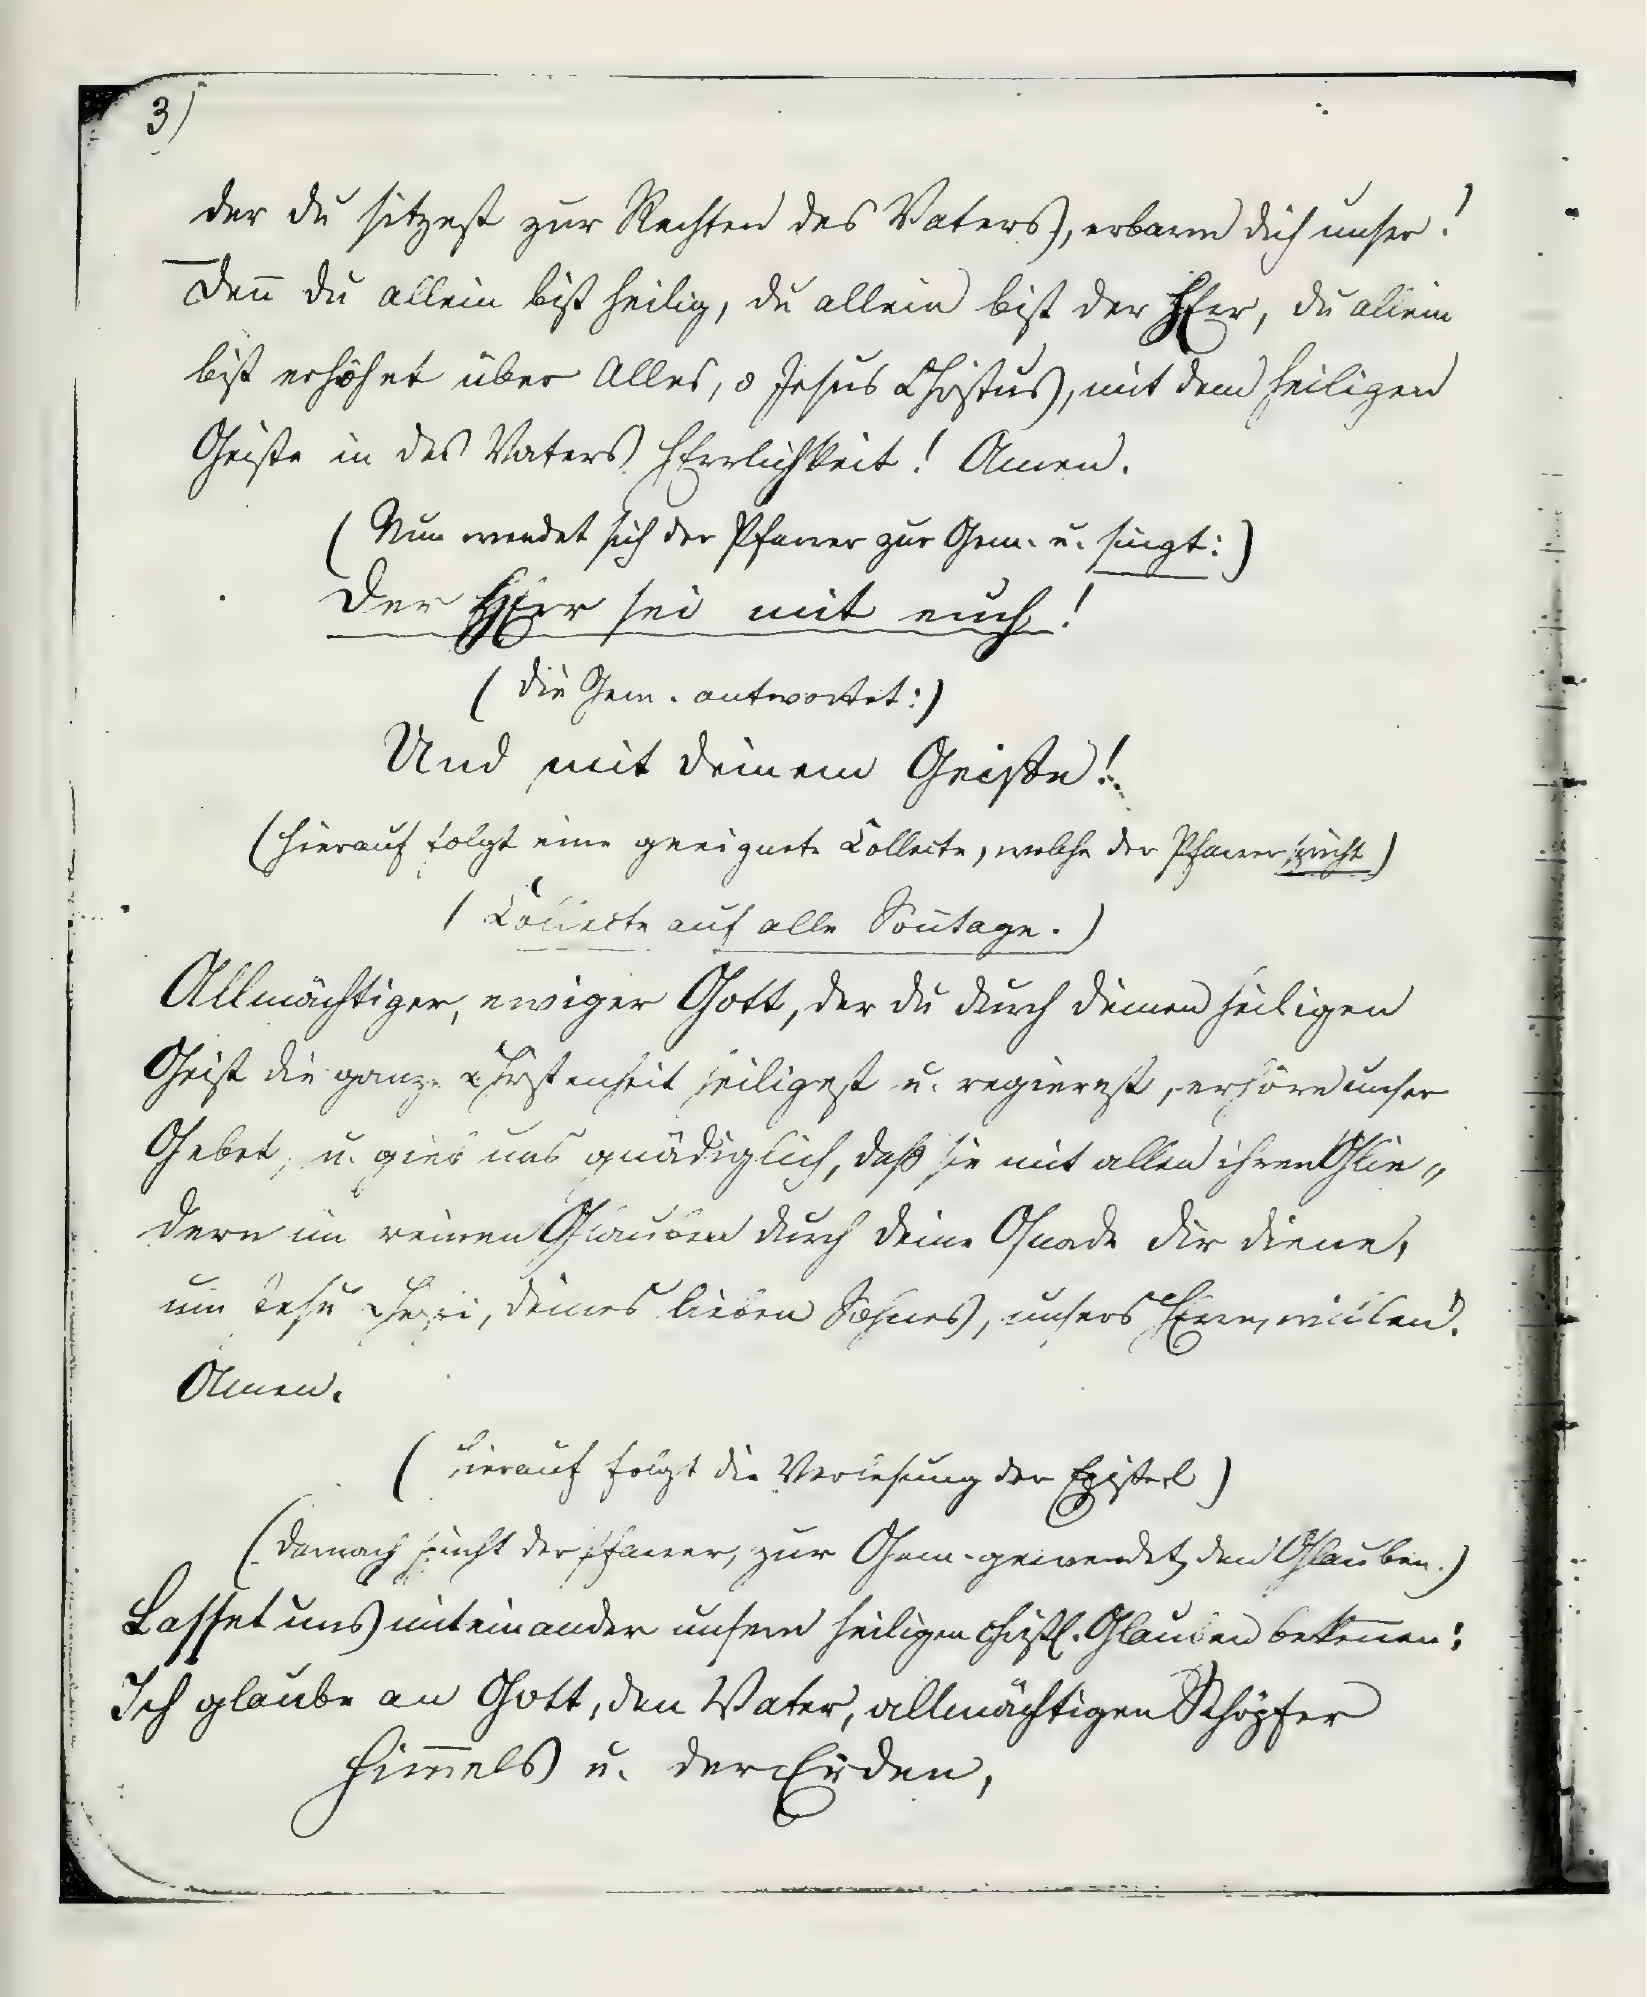 3)
der du sitzest zur Rechten des Vaters, erbarm dich unser!
Deñ du allein bist heilig, du allein bist der HErr, du allein
bist erhöhet über Alles, o Jesus Christus, mit dem heiligen
Geiste in des Vaters HErrlichkeit! Amen.
(Nun wendet sich der Pfarrer zur Gem. u. singt:)
Der HErr sei mit euch!
(die Gem. antwortet:)
Und mit deinem Geiste!
(hierauf folgt eine geeignete Collecte, welche der Pfarrer spricht)
(Collecte auf alle Soñtage.)
Allmächtiger, ewiger Gott, der du durch deinen heiligen
Geist die ganze Christenheit heiligest u. regierest, erhöre unser
Gebet, u. gieb uns gnädiglich, daß sie mit allen ihren Glie„
dern im reinen Glauben durch deine Gnade dir diene,
um Jesu Christi, deines lieben Sohnes, unsers HErrn, willen!
Amen.
(hierauf folgt die Verlesung der Epistel)
(Darnach spricht der Pfarrer, zur Gem. gewendet, den Glauben.)
Lasset uns miteinander unsern heiligen christl. Glauben bekeñen:
Ich glaube an Gott, den Vater, allmächtigen Schöpfer
Him̄els u. der Erden,